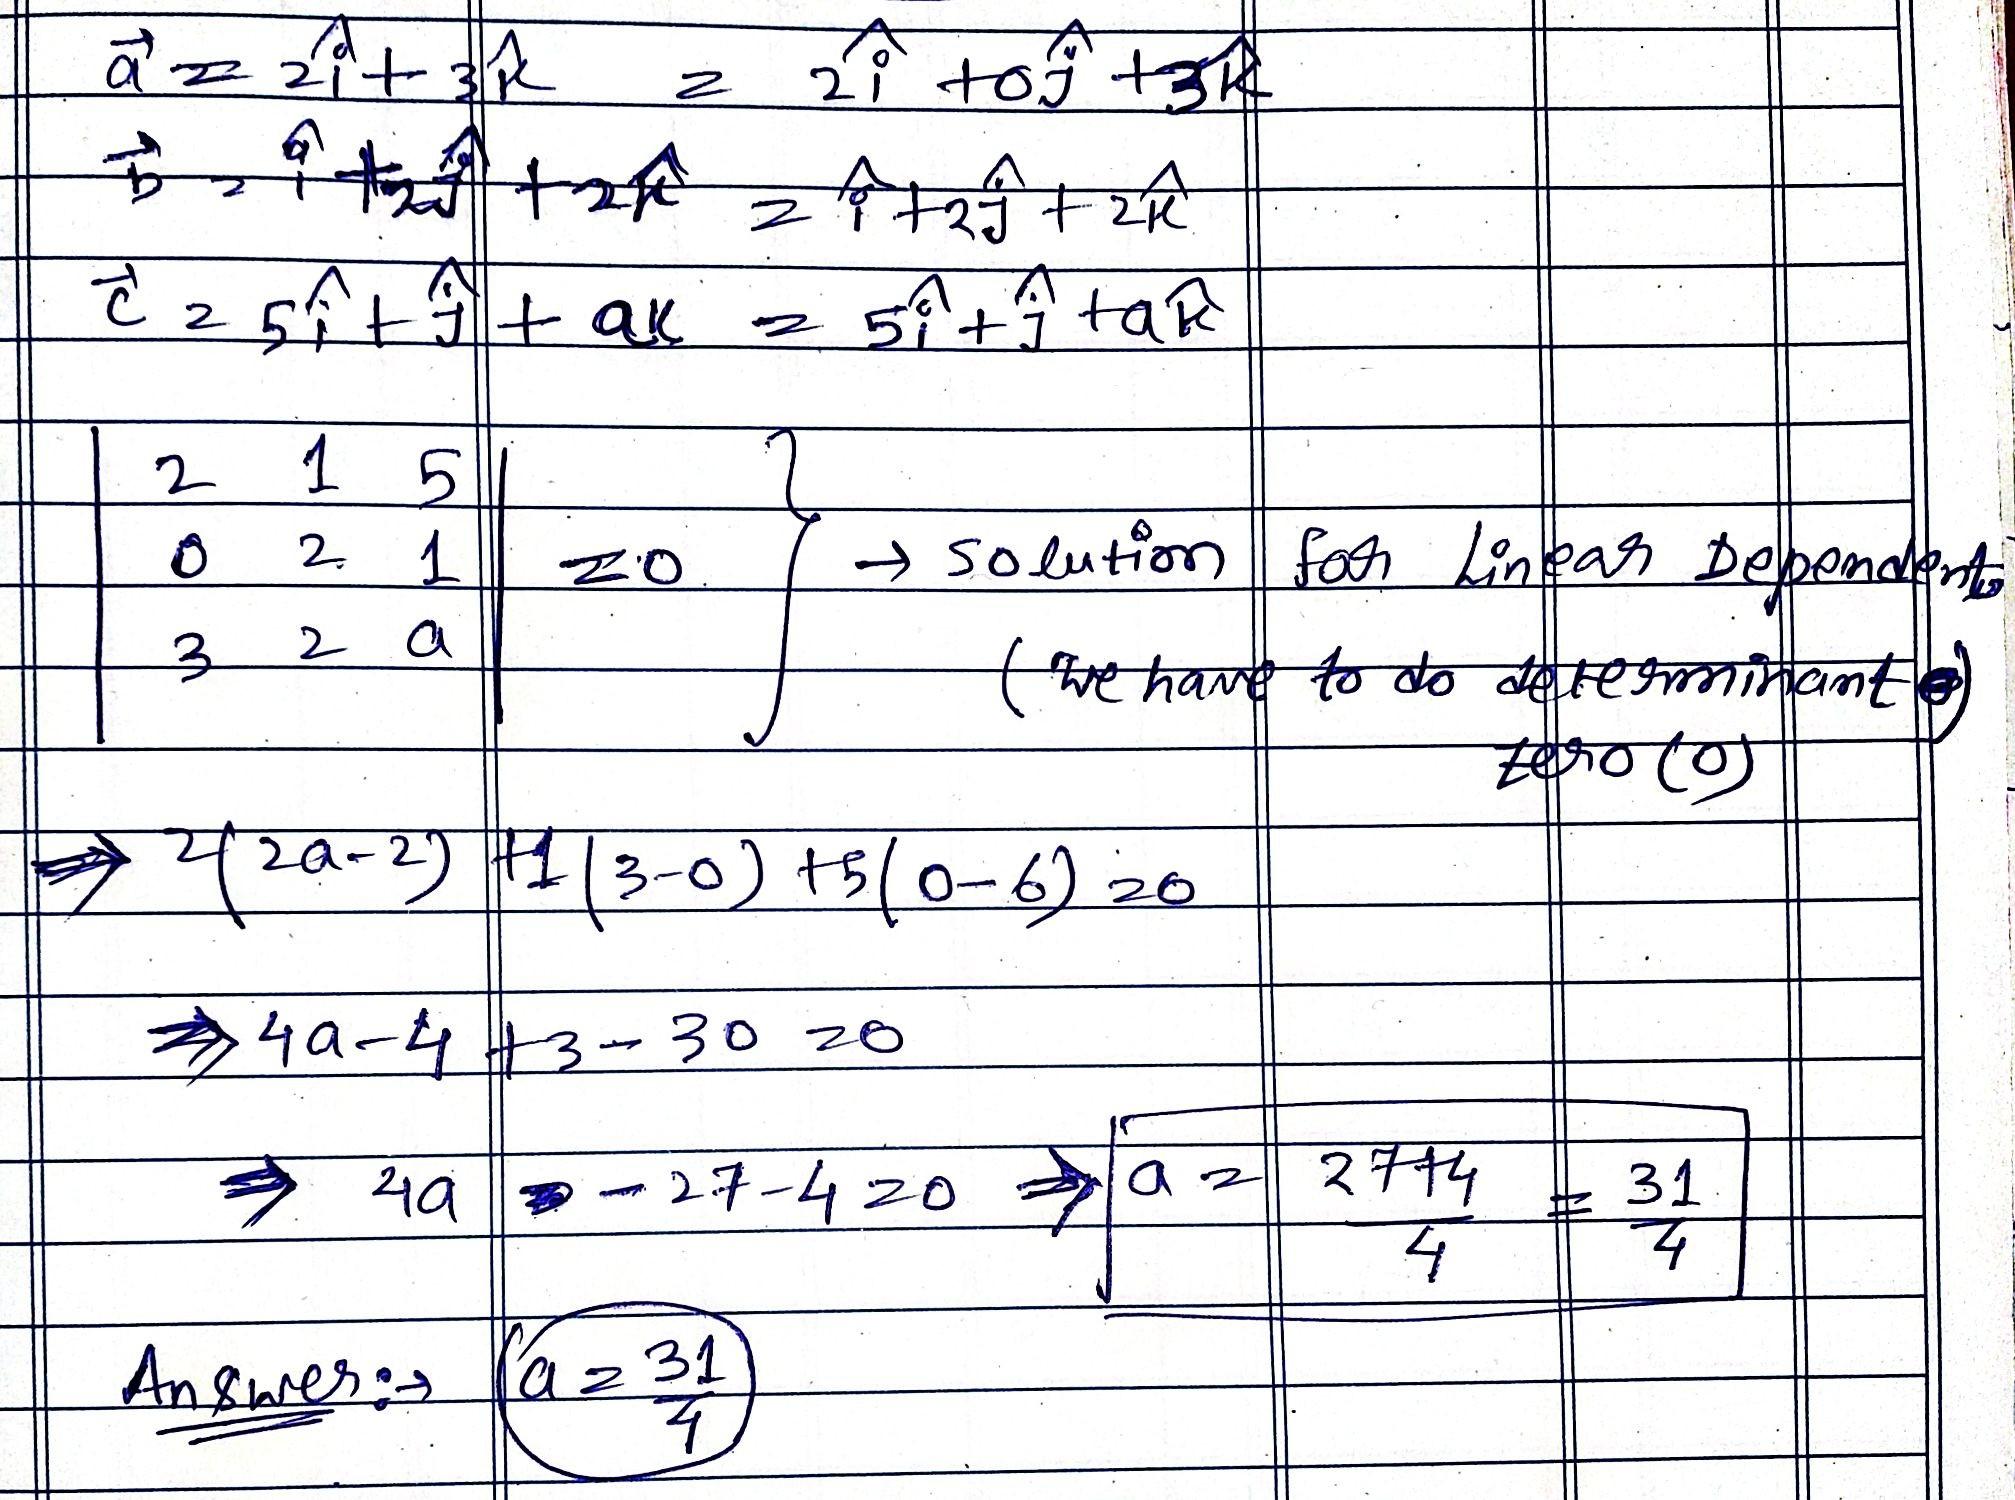 a⃗ = 2î + 3k̂ = 2î + 0ĵ + 3k̂
b⃗ = î + 2ĵ + 2k̂ = î + 2ĵ + 2k̂
c⃗ = 5î + ĵ + ak = 5î + ĵ + ak̂
| 2 1 5 |
| 0 2 1 | = 0 } → Solution for Linear Dependent.
| 3 2 a |
(We have to do determinant)
zero (0)
⇒ 2(2a-2) +1(3-0) +5(0-6) = 0
⇒ 4a-4 +3 - 30 = 0
⇒ 4a - 27-4 = 0 ⇒ a = 27+4/4 = 31/4
Answer :→ a = 31/4